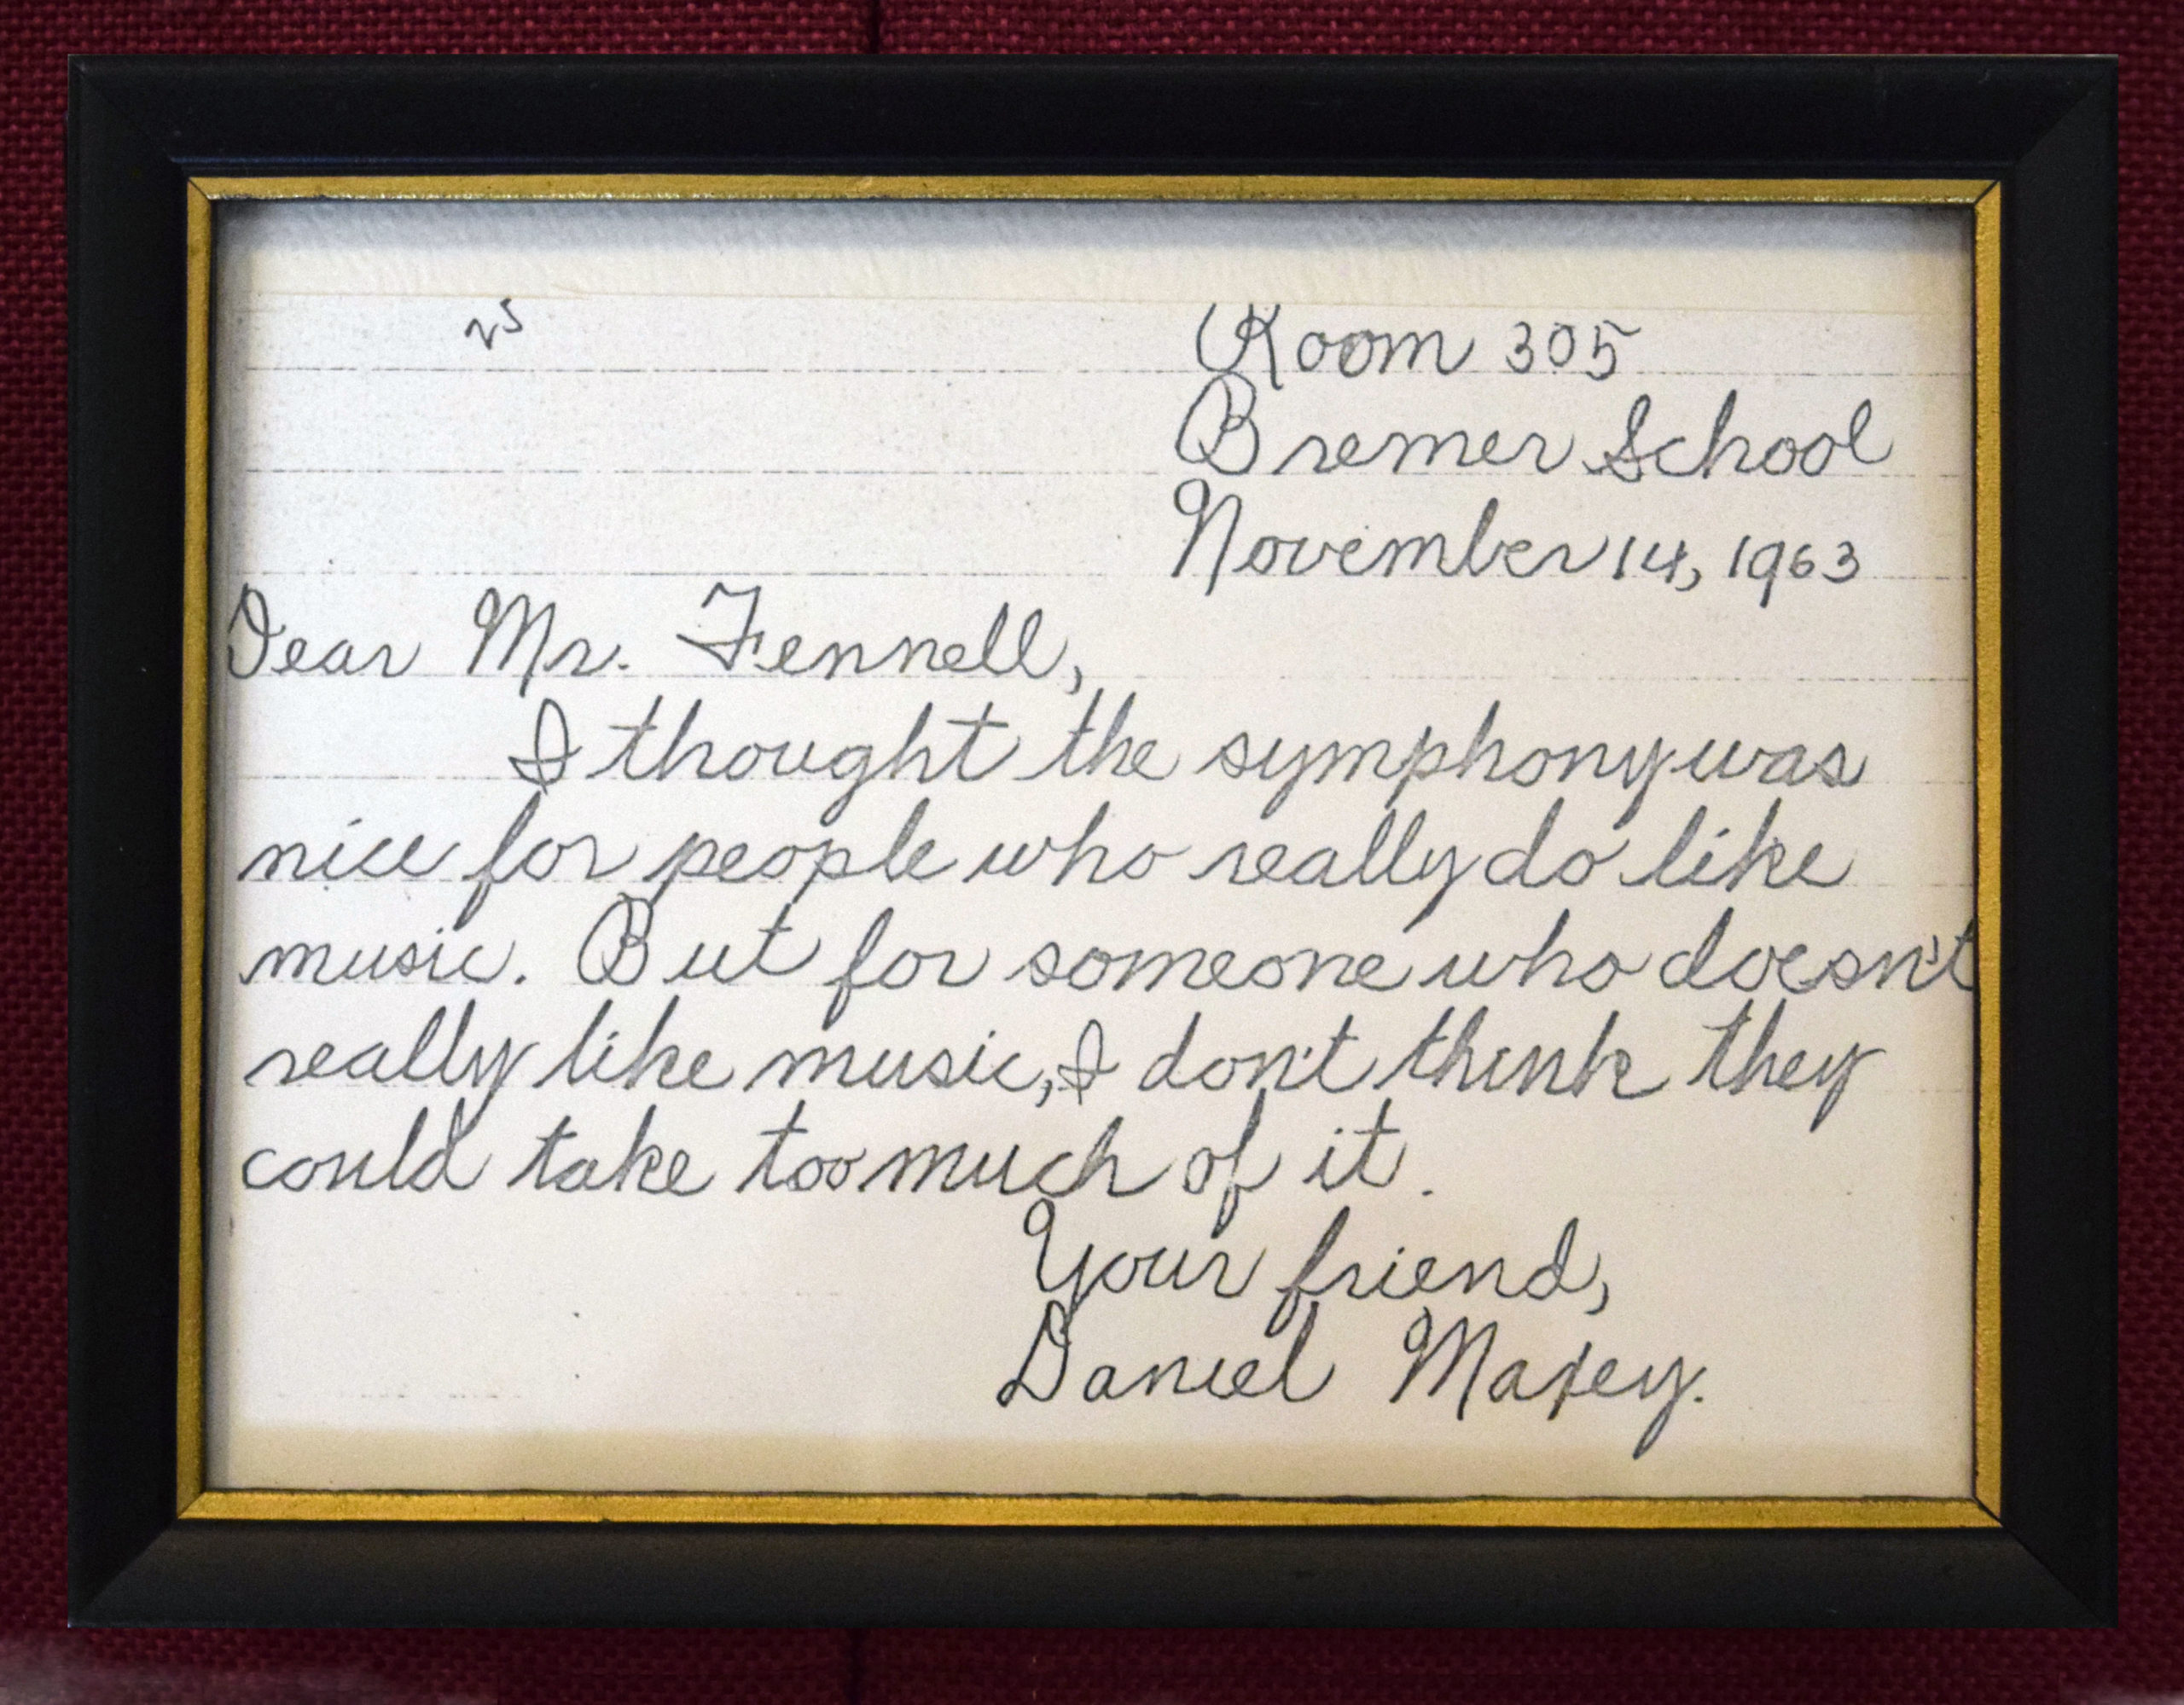 25
Room 305
Bremer School
November 14, 1963
Dear Mr. Fennell,
I thought the symphony was
nice for people who really do like
music. But for someone who doesn't
really like music, I don't think they
could take too much of it.
Your friend,
Daniel Maxey.